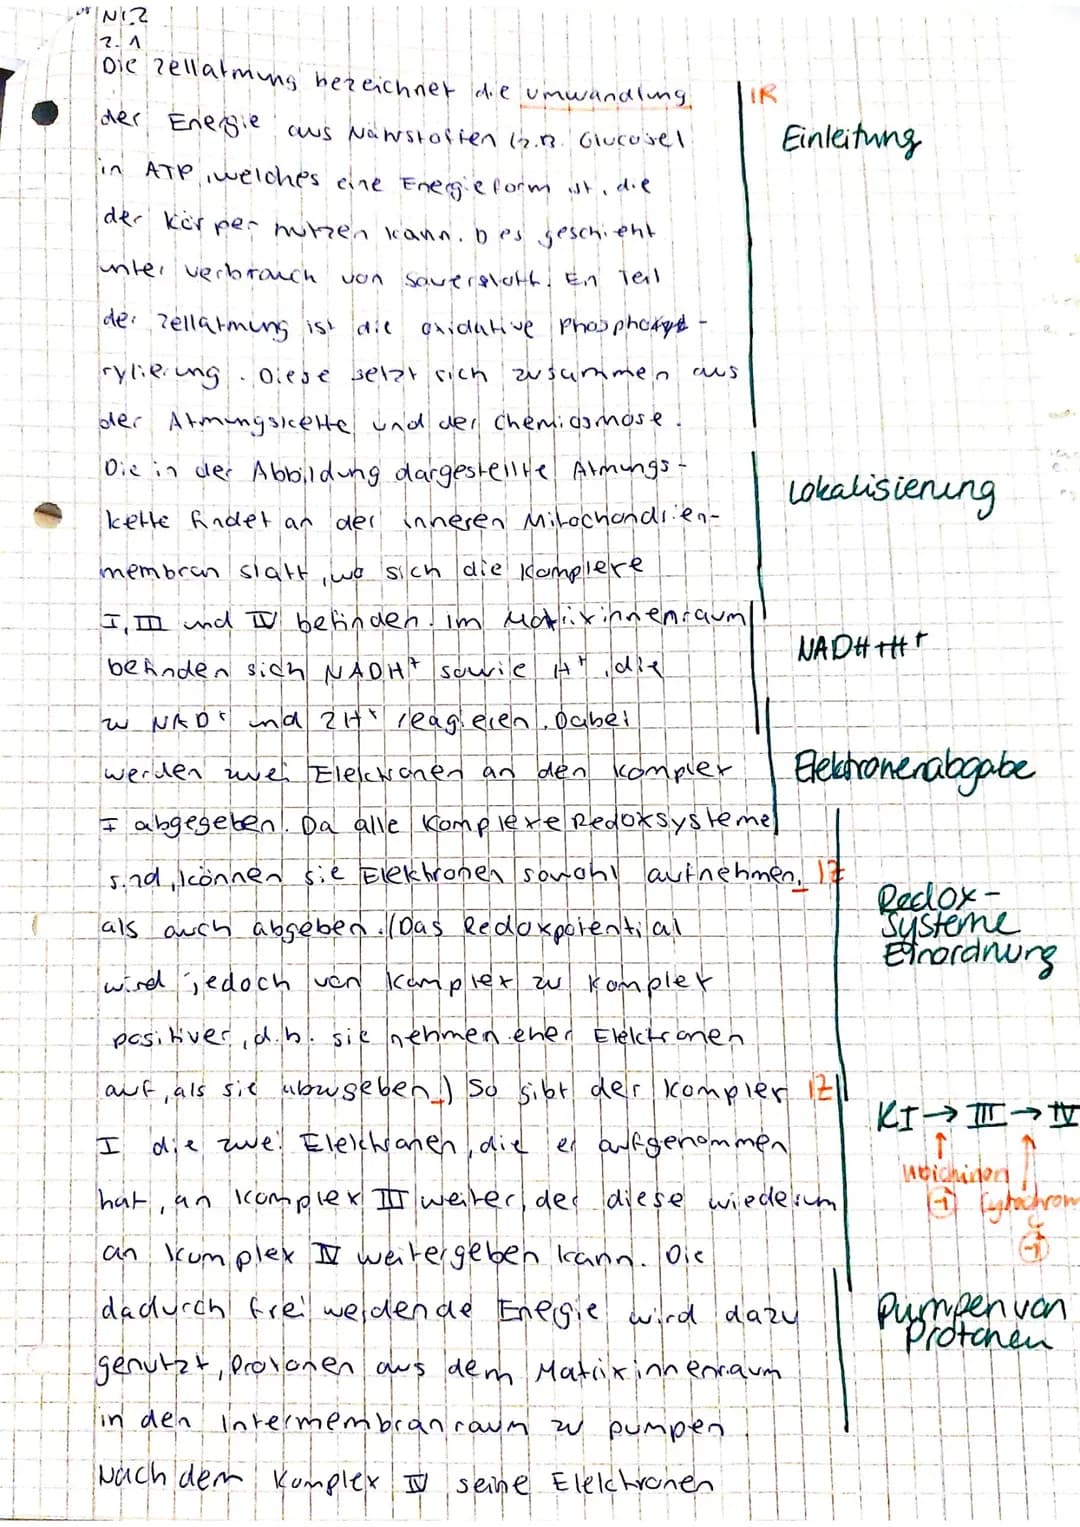 Nr. 2
2. 1
Die Zellatmung bezeichnet die umwandlung
1R
der Energie aus Nährstoffen (z.B. Glucose)
Einleitung
in ATP, welches eine Energieform ist, die
der Körper nutzen kann. Des geschieht
unter verbrauch von Sauerstoff. Ein Teil
der Zellatmung ist die oxidative Phospho
rylierung. Diese setzt sich zusammen aus
der Atmungskette und der Chemiosmose.
Die in der Abbildung dargestellte Atmungs-
Lokalisierung
kette findet an der inneren Mitochondrien-
membran statt, wo sich die Komplexe
I, III und IV befinden. Im Matrixinnenraum
NADH+H+
befinden sich NADH+ sowie H+, die
zu NAD+ und 2H+ reagieren. Dabei
werden zwei Elektronen an den Komplex
Elektronenabgabe
I abgegeben. Da alle Komplexe Redoxsysteme
sind, können sie Elektronen sowohl aufnehmen, 1Z
Redox-
Systeme
Einordnung
als auch abgeben. (Das Redoxpotential
wird jedoch von Komplex zu Komplex
positiver, d.h. sie nehmen eher Elektronen
auf, als sie abzugeben.) So gibt der Komplex 1Z
KI → III → IV
I die zwei Elektronen, die er aufgenommen
Ubichinon
(-1)
Cytochrom
c
(-1)
hat, an Komplex III weiter, der diese wiederum
an Komplex IV weitergeben kann. Die
dadurch frei werdende Energie wird dazu
Pumpen von
Protonen
genutzt, Protonen aus dem Matrixinnenraum
in den Intermembranraum zu pumpen
Nachdem Komplex IV seine Elektronen